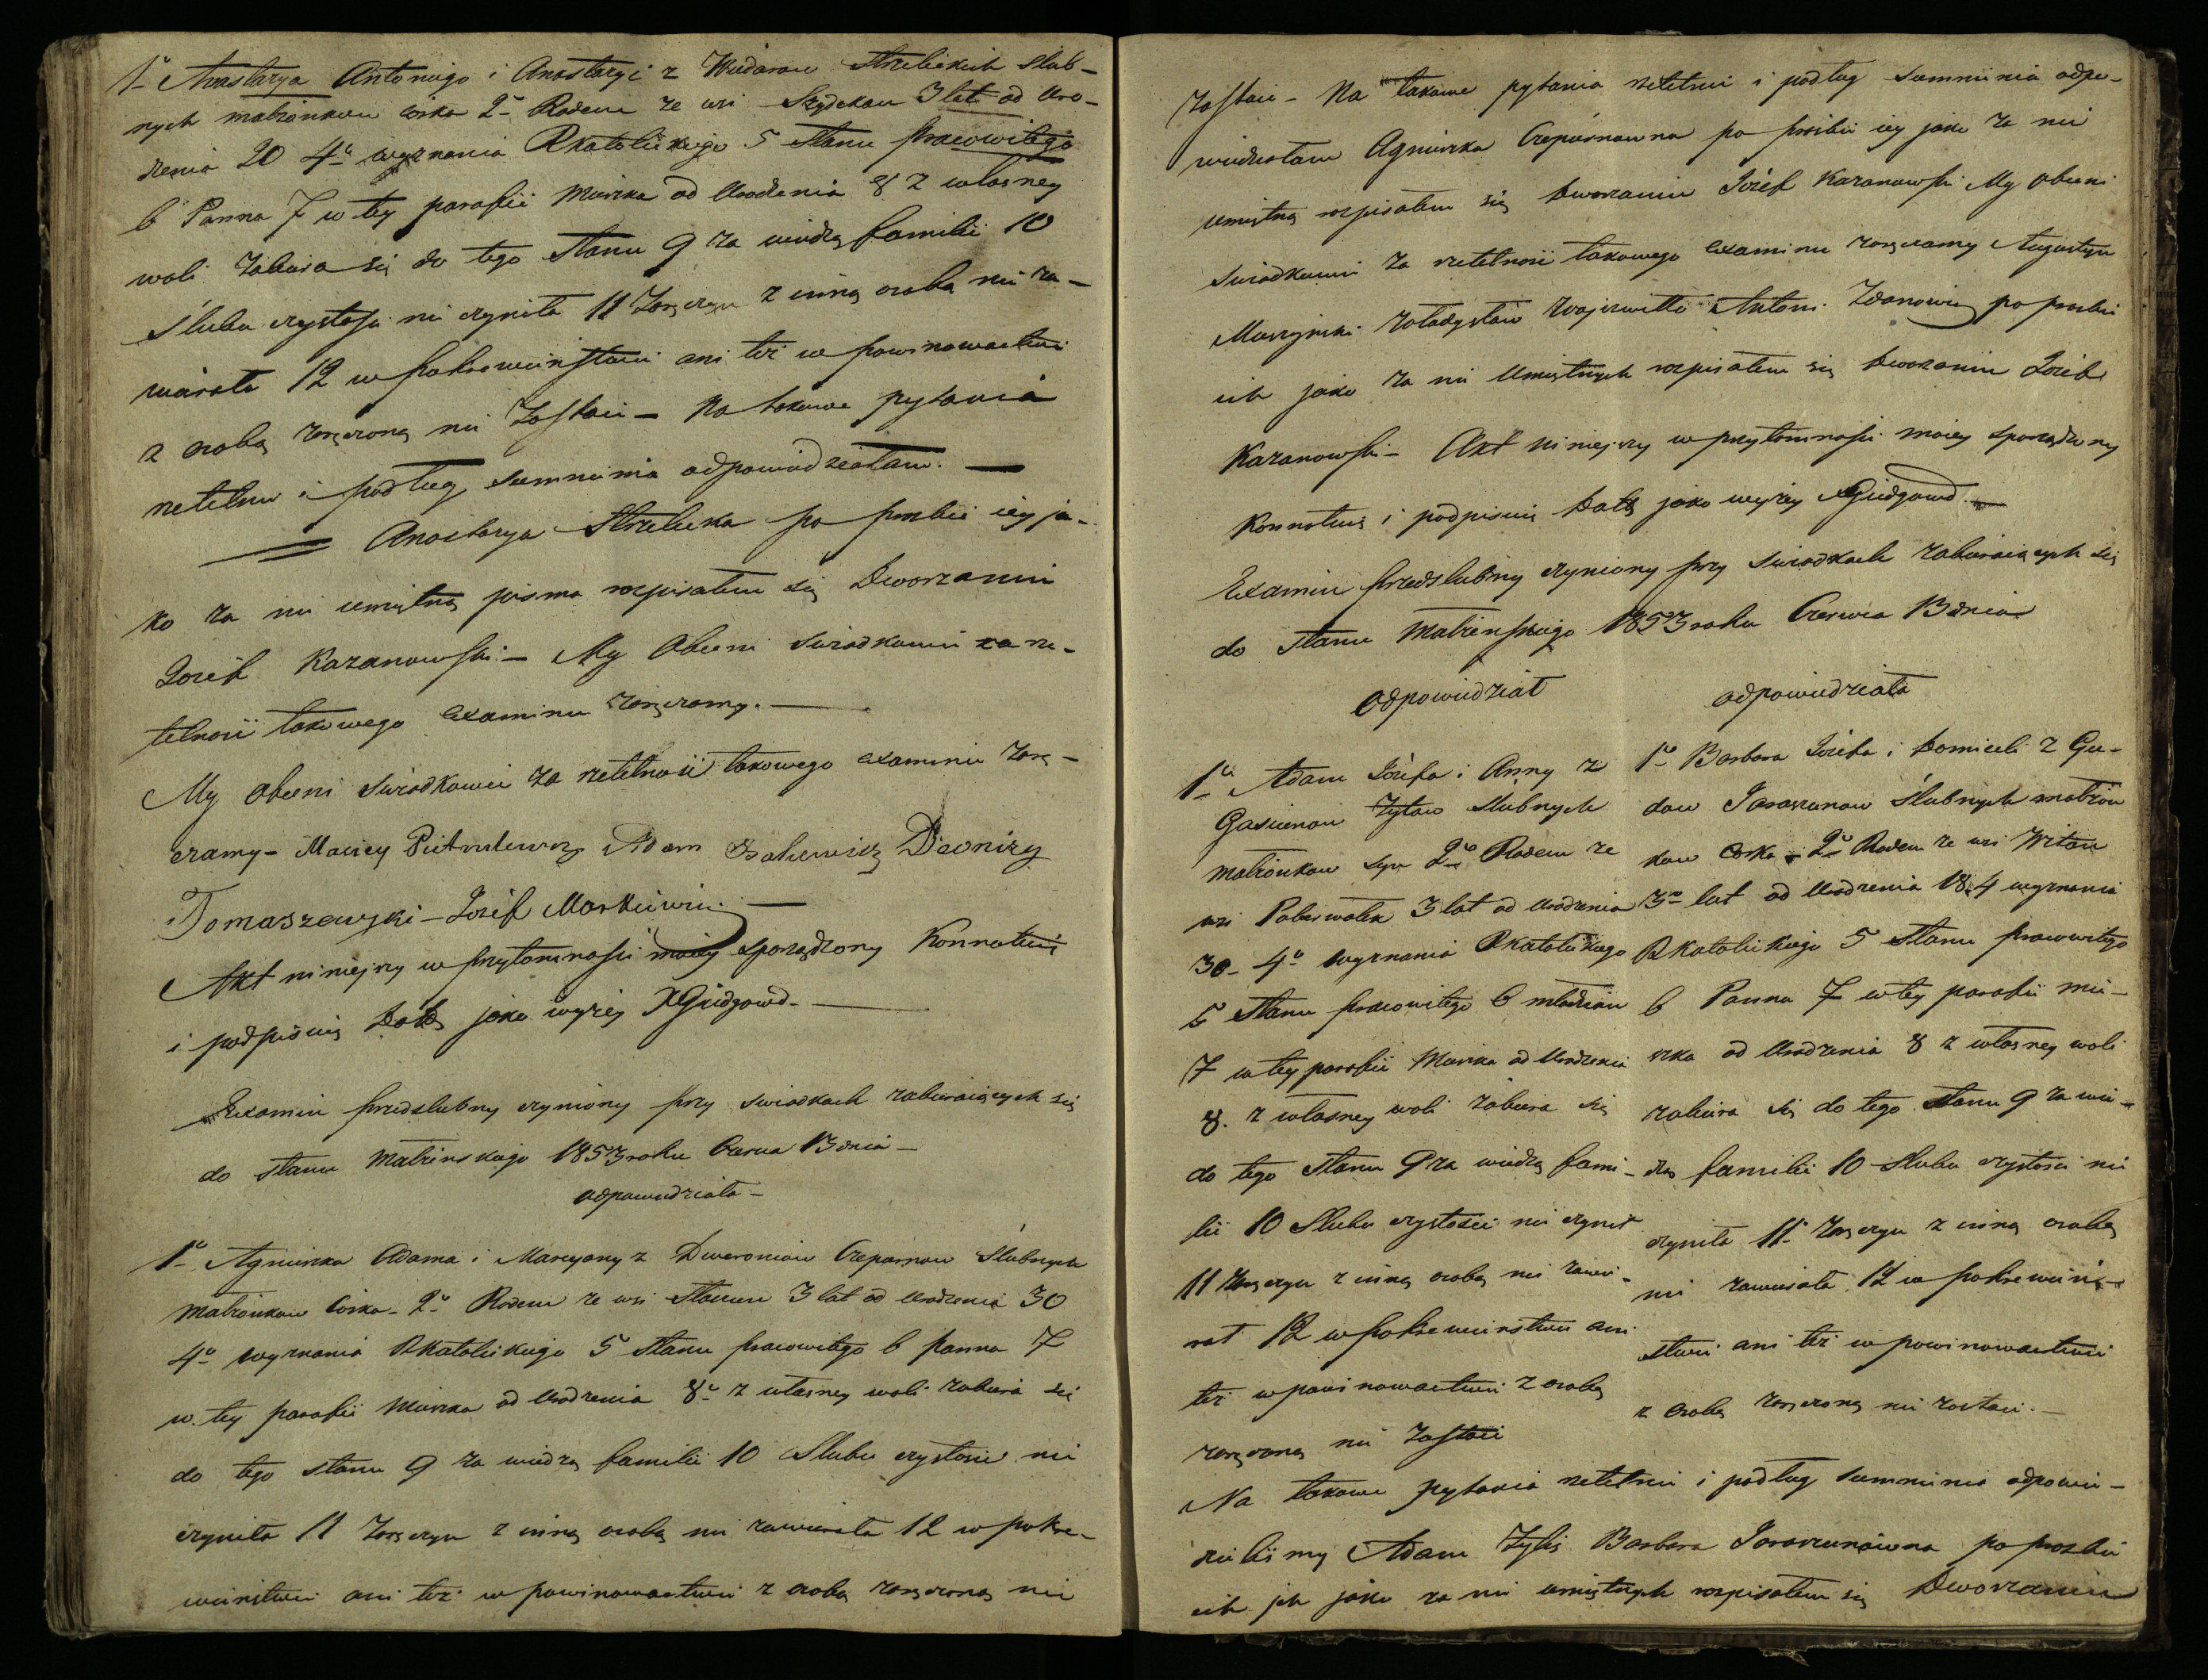 1º Anastazya Antoniego i Anastazyi z Widarow Strzelickich Slub-
nych malżonkow córka 2º Rodem ze wsi Szydekow 3 lat od Uro-
dzenia 20 4º wyznania RKatolickiego 5 Stanu pracowitego
6 Panna 7 w tey parafii Mieszka od Urodzenia 8 z wlasney
woli zabiera się do tego Stanu 9 za wiedzą familii 10
Slubu czystosci nie czynila 11 Zaręczyn z inną osobą nie za-
wierała 12 w pokrewieństwie ani też w powinowactwie
z osobą zaręczoną nie Zostaie - Na takowe pytania
rzetelnie i podług sumnienia odpowiedziałam. —
Anastazya Strzelicka po prozbie iey ja-
ko za nie umiętną pisma rozpisałem się Dworzanin
Jozef Kazanowski - My Obecni swiadkowie za rze-
telność takowego examinu zaręczamy. —
My obecni swiadkowie za rzetelność takowego examinu zarę-
czamy - Maciey Pietrulewicz Adam Dionizy
Tomaszewski - Jozef Markiewicz —
Akt niniejszy w przytomnosci moiey sporządzony Konnotuię
i podpisuię Datą jako wyżey X Giedgowd. —
Examin przedslubny czyniony przy swiadkach zabieraiących się
do stanu Malżenskiego 1853 roku Czerwca 13 dnia -
odpowiedziała -
1º Agnieszka Adama i Maryanny z Czeparnow Slubnych
malżonkow Córka - 2º Rodem ze wsi 3 lat od Urodzenia 30
4º wyznania RKatolickiego 5 Stanu pracowitego 6 panna 7
w tey parafii Mieszka od Urodzenia 8º z własney woli zabiera się
do tego stanu 9 za wiedzą familii 10 Slubu czystosci nie
czyniła 11 Zaręczyn z inną osobą nie zawierała 12 w pokre-
wieństwie ani też w powinowactwie z osobą zaręczoną nie
Zostaie - Na takowe pytania rzetelnie i podług Sumnienia odpo-
wiedziałam Agnieszka Czeparnowna po prozbie iey jako za nie
umiętną rozpisałem się Dworzanin Jozef Kazanowski My obecni
Swiadkowie za rzetelność takowego examinu zaręczamy Augustyn
Antoni Zdanowicz po prozbie
ich jako za nie umiętnych rozpisałem się Dworzanin Jozef
Kazanowski - Akt niniejszy w przytomnosci moiey sporządzony
Konnotuię i podpisuię Datą jako wyżey X Giedgowd. —
Examin przedslubny czyniony przy swiadkach zabieraiących się
do stanu Malżenskiego 1853 roku Czerwca 13 dnia
odpowiedział
1º Adam Józefa i Anny z
Gasiunow Zylow Slubnych
malżonkow syn 2º Rodem ze
wsi 3 lat od Urodzenia
30 - 4º wyznania RKatolickiego
5 Stanu pracowitego 6 młodzian
7 w tey parafii Mieszka od Urodzenia
8. z własney woli zabiera się
do tego Stanu 9 za wiedzą fami-
lii 10 Slubu czystosci nie czynił
11 Zaręczyn z inną osobą nie zawie-
rał 12 w pokrewieństwie ani
też w powinowactwie z osobą
zaręczoną nie Zostaie
odpowiedziała
1º Barbara Józefa i Domiceli z
Jaraszunow Slubnych malżon
kow Córka - 2º Rodem ze wsi
3º lat od Urodzenia 18. 4 wyznania
RKatolickiego 5 Stanu pracowitego
6 Panna 7 w tey parafii mie-
szka od Urodzenia 8 z własney woli
zabiera się do tego Stanu 9 za wie-
dzą familii 10 Slubu czystosci nie
czyniła 11 Zaręczyn z inną osobą
nie zawierała 12 w pokrewień-
stwie ani też w powinowactwie
z osobą zaręczoną nie zostaie. —
Na takowe pytania rzetelnie i podług sumnienia odpowie-
dzieliśmy Adam Zylis Barbara Jaraszunowna po prozbie
ich jako za nie umiętnych rozpisałem się Dworzanin